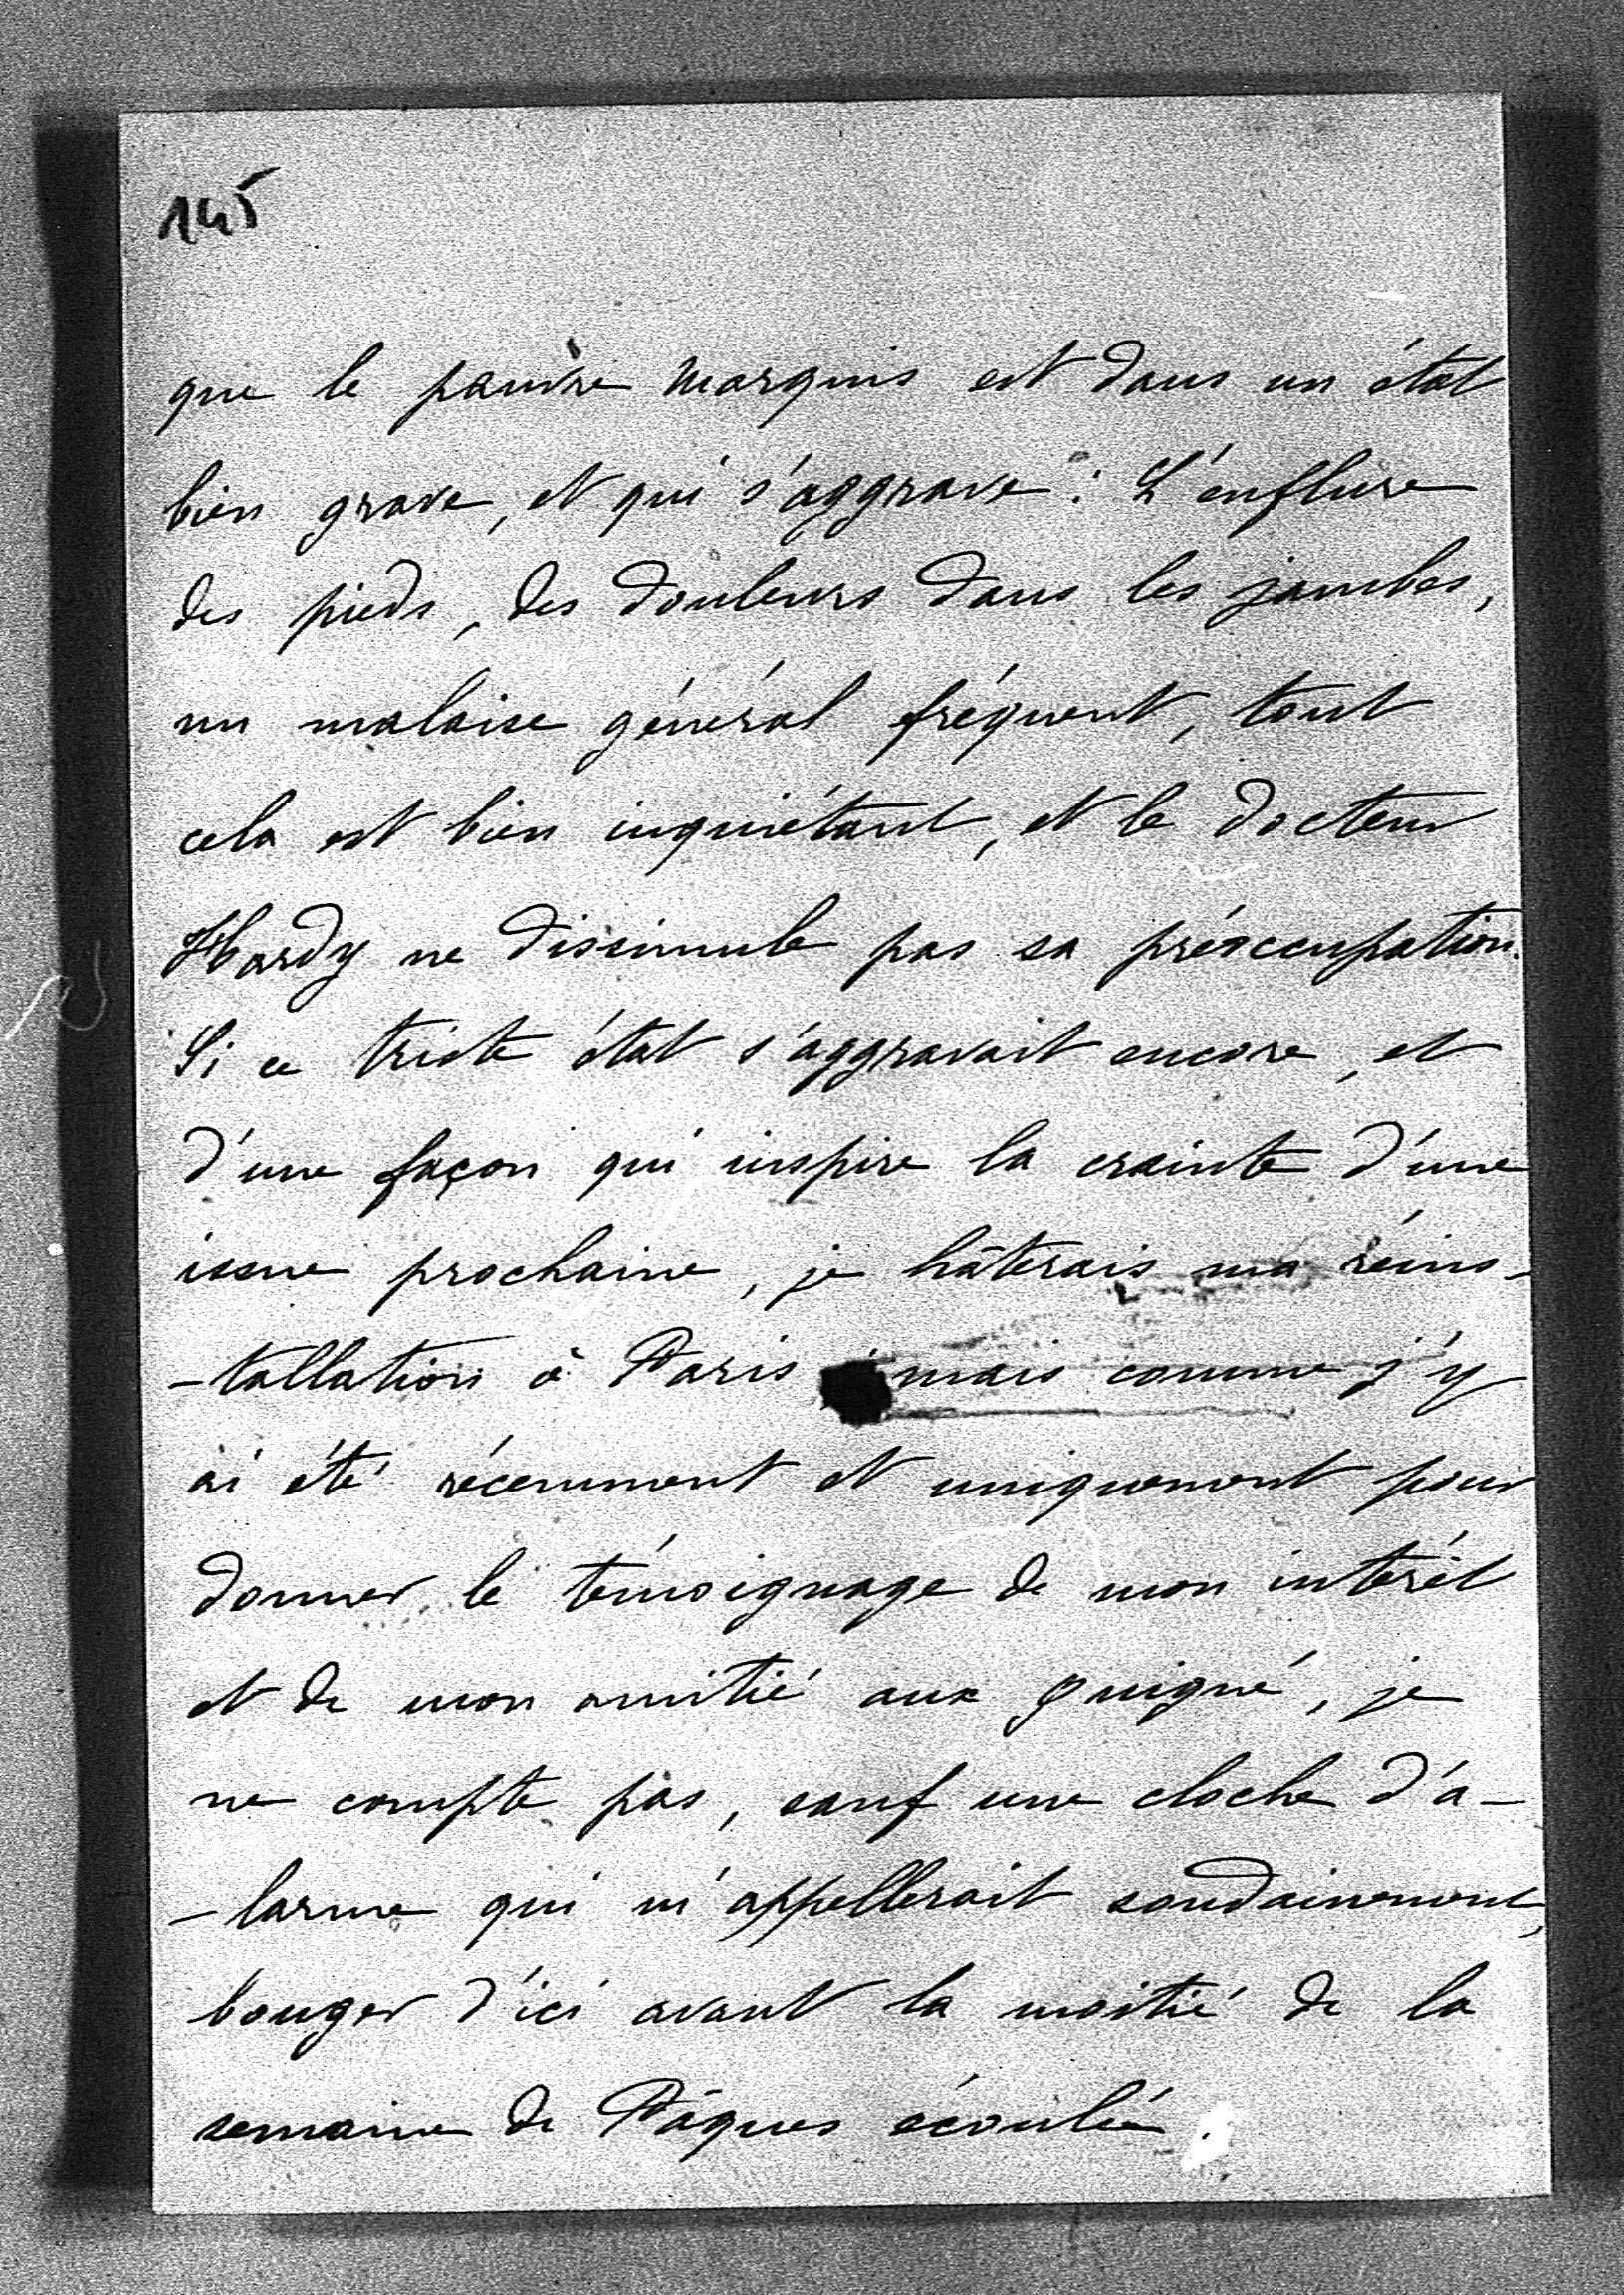 145
que le pauvre marquis est dans un état
bien grave, et qui s'aggrave : L'enflure
des pieds, des douleurs dans les jambes,
un malaise général fréquent, tout
cela est bien inquiétant, et le docteur
Hardy ne dissimule pas sa préoccupation.
Si ce triste état s'aggravait encore, et
d'une façon qui inspire la crainte d'une
issue prochaine, je hâterais ma réins-
-tallation à Paris mais comme j'y
ai été récemment et uniquement pour
donner le témoignage de mon intérêt
et de mon amitié aux guigné, je
ne compte pas, sauf une cloche d'a-
-larme qui m'appellerait soudainement,
bouger d'ici avant la moitié de la
semaine de Pâques écoulée.